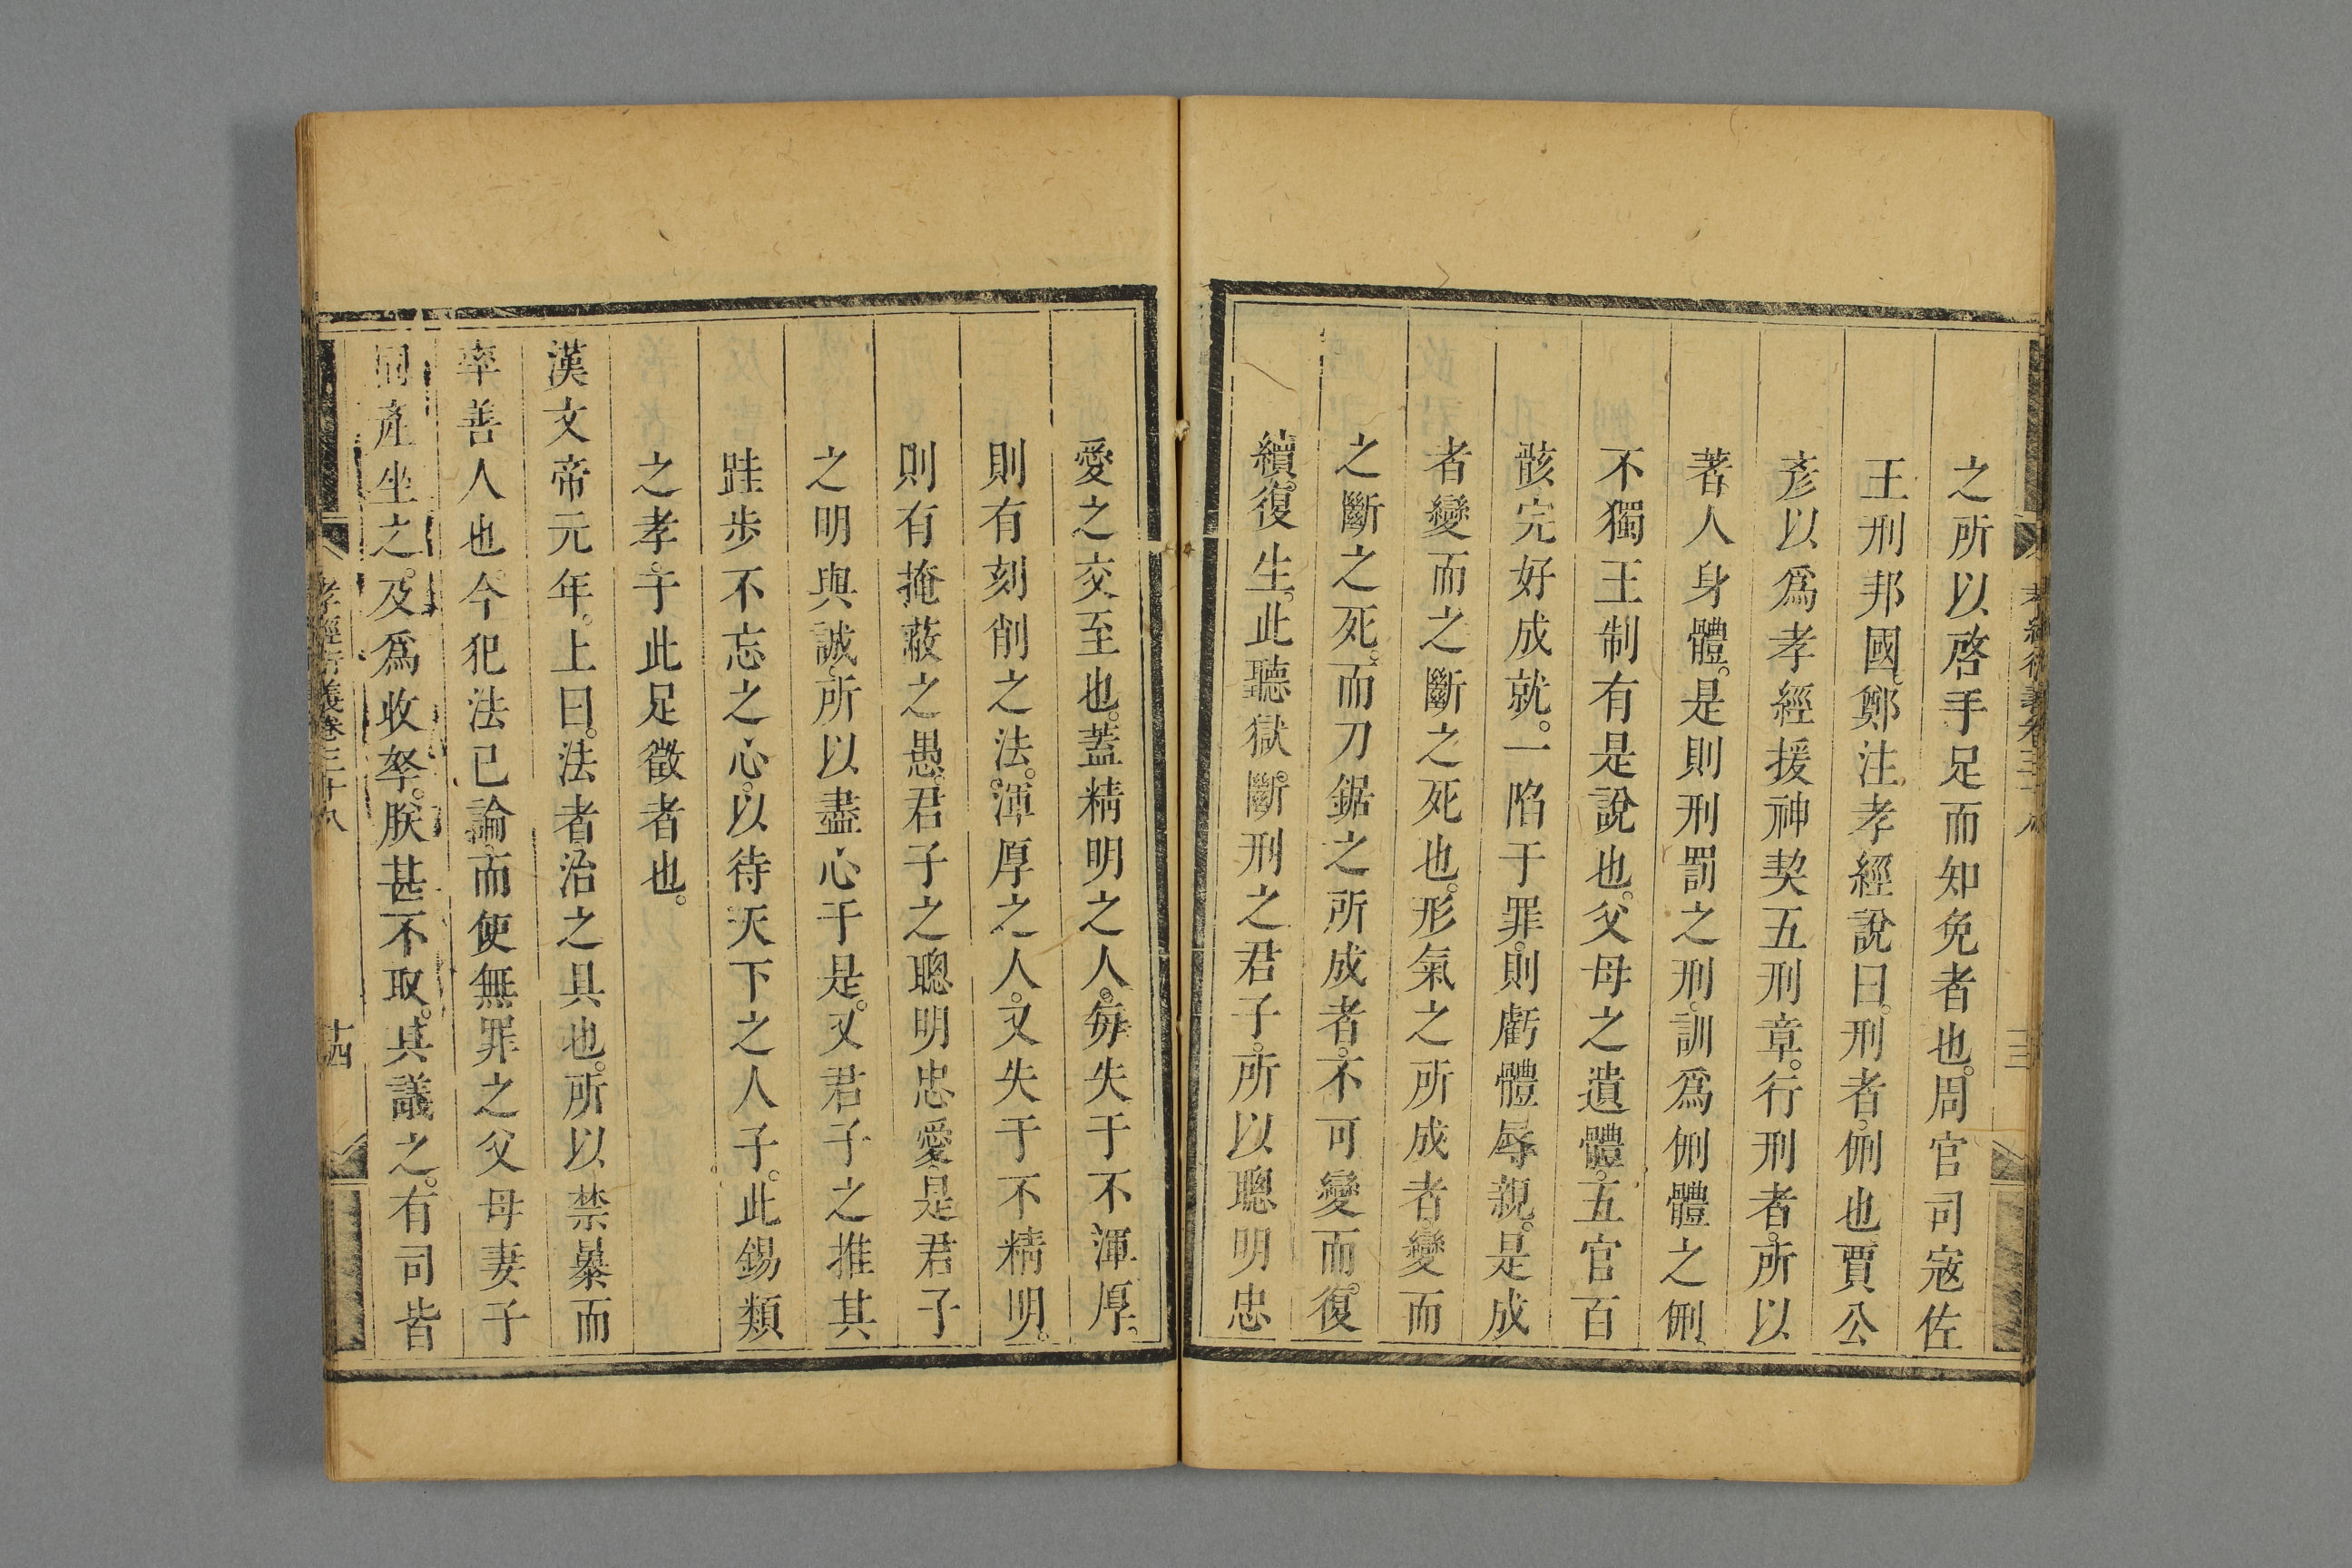 之所以啓手足而知免者也。周官司寇佐
王刑邦國。鄭注孝經說曰。刑者。侀也。賈公
彥以爲孝經援神契五刑章。行刑者。所以
著人身體。是則刑罰之刑。訓爲侀體之侀。
不獨王制有是說也。父母之遺體。五官百
骸完好成就。一陷于罪。則虧體辱親。是成
者變而之斷之死也。形氣之所成者。變而
之斷之死。而刀鋸之所成者。不可變而。復
續。復生。此聽獄。斷刑之君子。所以聰明忠
愛之交至也。蓋精明之人。每失于不渾厚。
則有刻削之法。渾厚之人。又失于不精明。
則有掩蔽之愚。君子之聰明忠愛。是君子
之明與誠。所以盡心于是。又君子之推其
跬步不忘之心。以待天下之人子。此錫類
之孝。于此足徵者也。
漢文帝元年。上曰。法者。治之具也。所以禁暴而
率善人也。今犯法已論。而使無罪之父母妻子
同產坐之。及爲收孥。朕甚不取。其議之。有司皆
孝經衍義卷三十八
十四